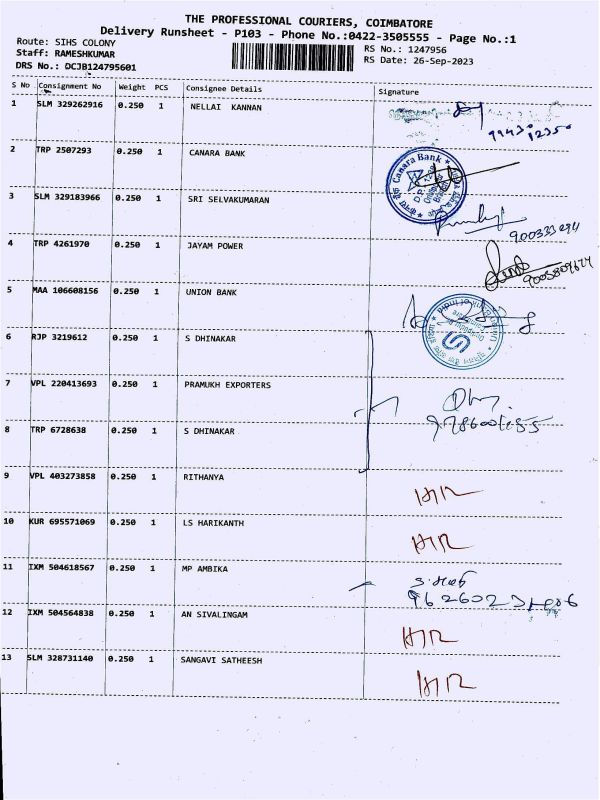 THE PROFESSIONAL COURIERS, COIMBATORE
Delivery Runsheet - P103 - Phone No.:0422-3505555 - Page No.:1
Route: SIHS COLONY
Staff: RAMESHKUMAR
DRS No.: DCJB124795601
RS No.: 1247956
RS Date: 26-Sep-2023
S No Consignment No Weight PCS Consignee Details Signature
1 SLM 329262916 0.250 1 NELLAI KANNAN
2 TRP 2507293 0.250 1 CANARA BANK
Canara Bank
3 SLM 329183966 0.250 1 SRI SELVAKUMARAN
4 TRP 4261970 0.250 1 JAYAM POWER
5 MAA 106608156 0.250 1 UNION BANK
6 RJP 3219612 0.250 1 S DHINAKAR
7 VPL 220413693 0.250 1 PRAMUKH EXPORTERS
8 TRP 6728638 0.250 1 S DHINAKAR
9 VPL 403273858 0.250 1 RITHANYA
10 KUR 695571069 0.250 1 LS HARIKANTH
11 IXM 504618567 0.250 1 MP AMBIKA
12 IXM 504564838 0.250 1 AN SIVALINGAM
13 SLM 328731140 0.250 1 SANGAVI SATHEESH